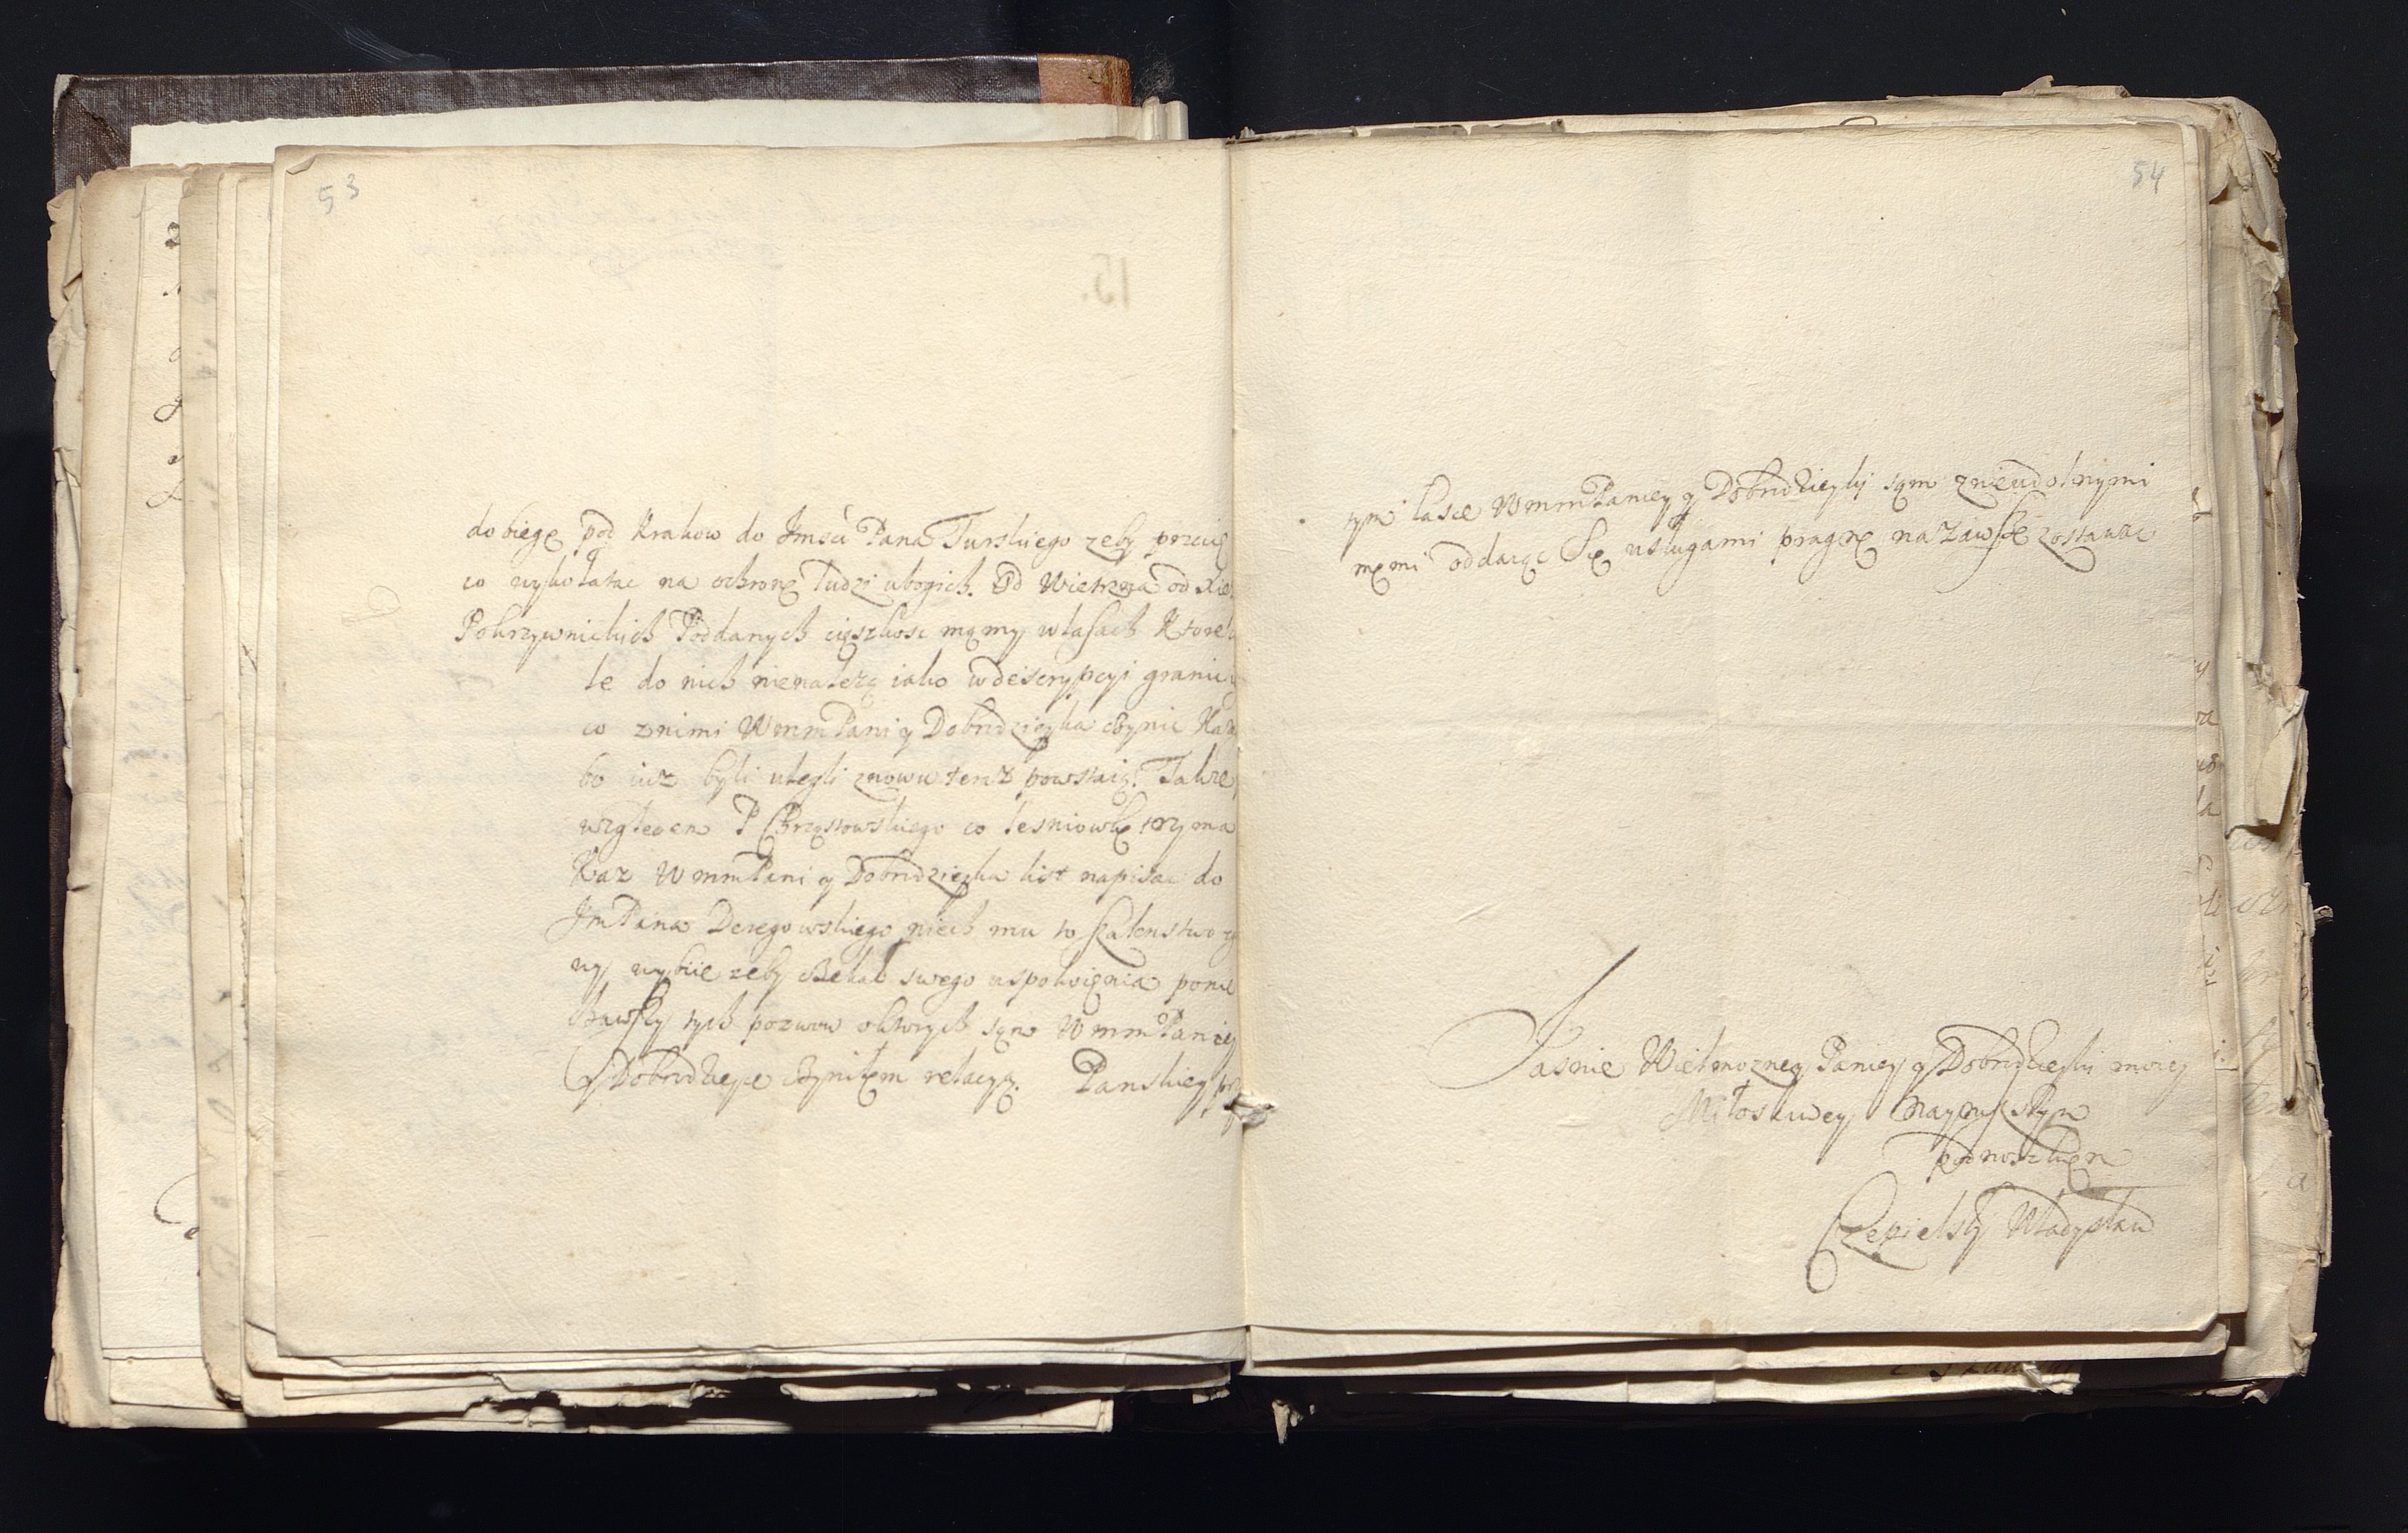 53
dobiegę pod Krakow do Jmści Pana Turskiego zeby przecię
co wykołatac na ochronę ludzi ubogich. Od Wietrzna od Xie
Pokrzywnickich Poddanych cięszkosc mamy w lasach Ktore
le do nich nienalezą iako w descrypcyi granic
co z nimi WmmPani y Dobrodzieyka czynic Ka
bo iuz byli ulegli znowu teraz powstaią. Takze
względem P Chrząstowskiego co lesniowkę trzyma
Kaz WmmPani y Dobrodzieyka list napisac do
JmPana Deregowskiego niech mu to szalenstwo z
wy wybiie zeby czekał swego uspokoienia ponie
chawszy tych pozwow o ktorych sam WmmPaniey
y Dobrodzieyce czyniłem relacyą. Panskiey prz
54
tym łasce WmmPaniey y Dobrodzieyki sam z nieudolnymi
memi oddaiąc się usługami pragnę na zawsze zostawac
Jasnie Wielmozney Paniey y Dobrodzieyki moiey
Miłosciwey naynizszym
podnoszkiem
Czepielski Władysław